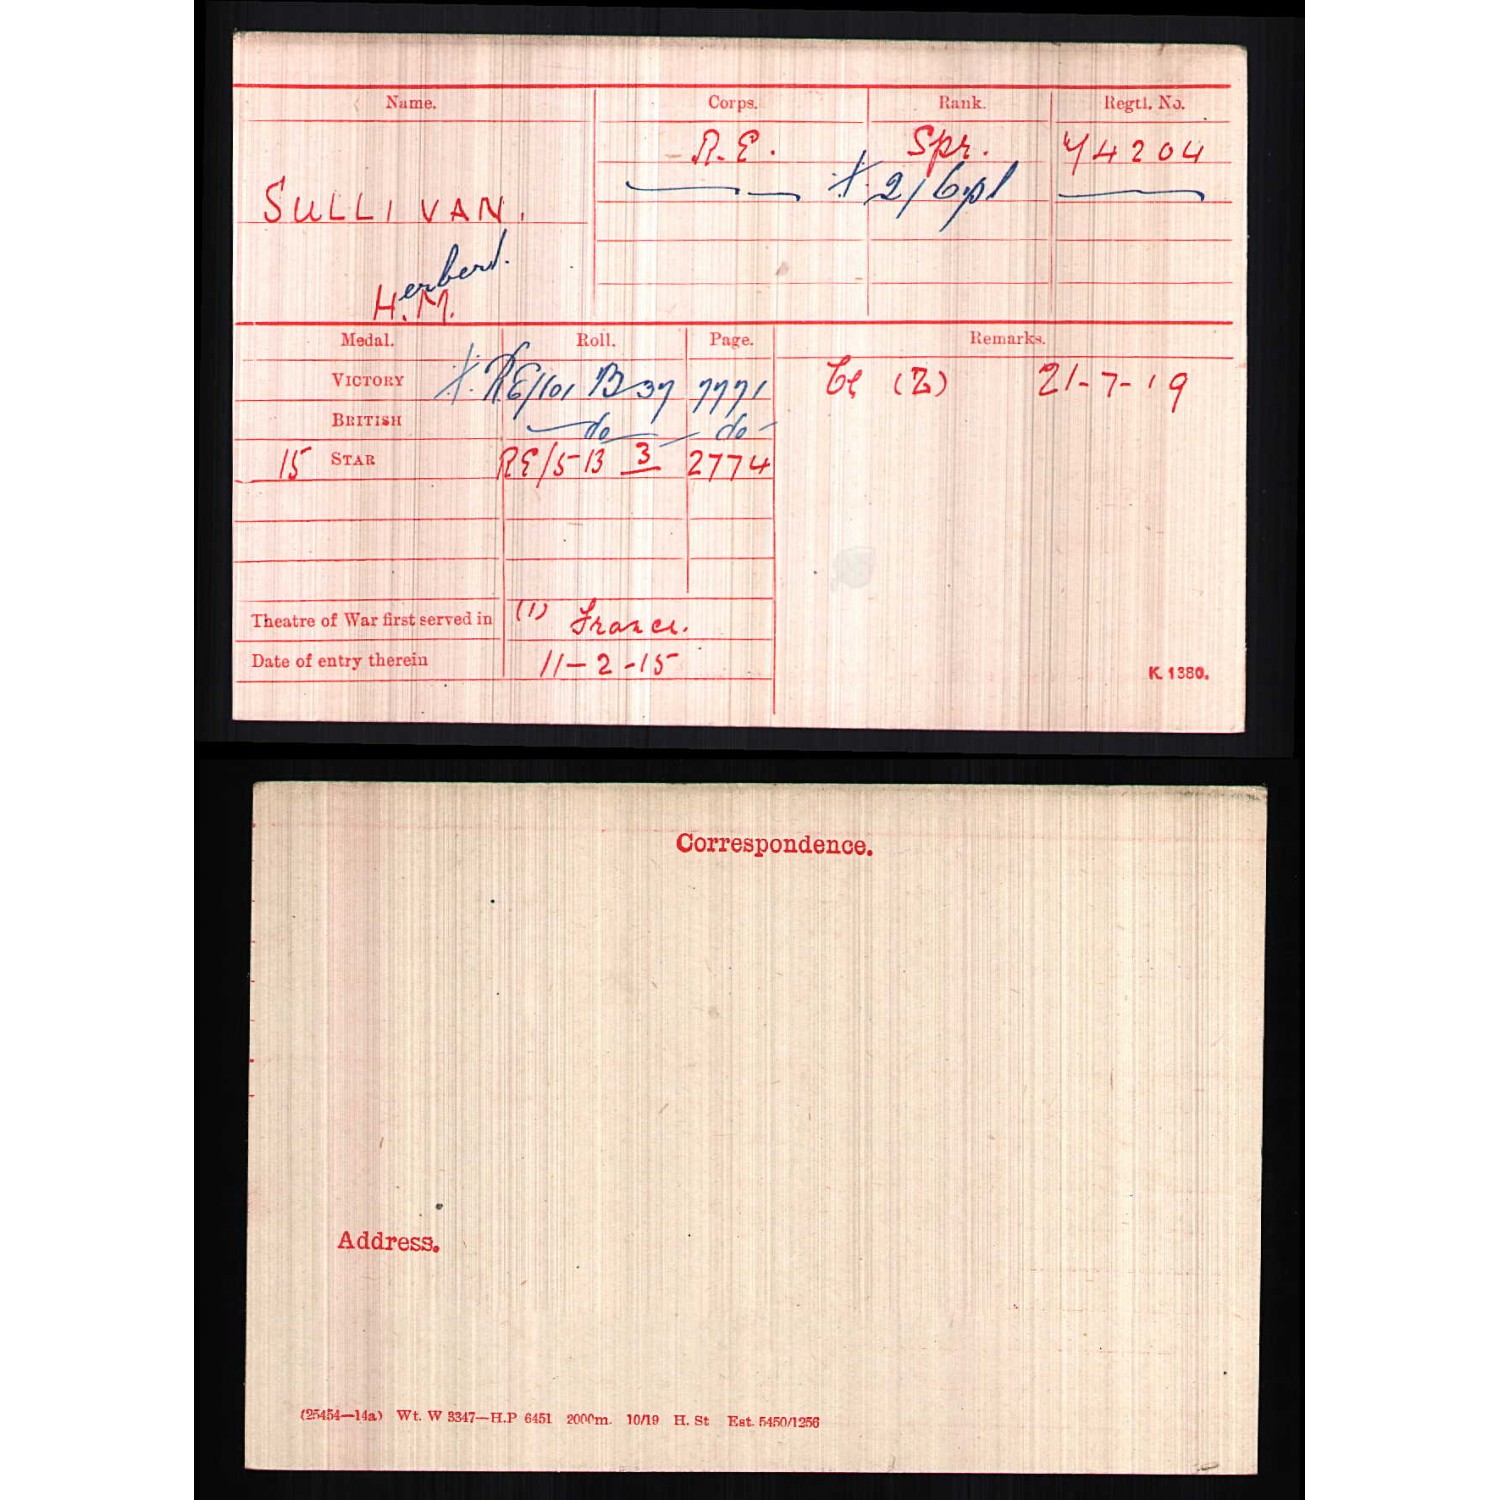 Name. Corps. Rank. Regtl. No.
R.E. Spr. 44204
2/Cpl
SULLIVAN.
Herbert.
H.M.
Medal. Roll. Page. Remarks.
VICTORY RE/101 B37 7771 Cl (Z) 21-7-19
BRITISH do do
15 STAR RE/5 B 3 2774
Theatre of War first served in (1) France.
Date of entry therein 11-2-15
K. 1380.
Correspondence.
Address.
(25454—14a) Wt. W 3347—H.P 6451 2000m. 10/19 H. St Est. 5450/1256